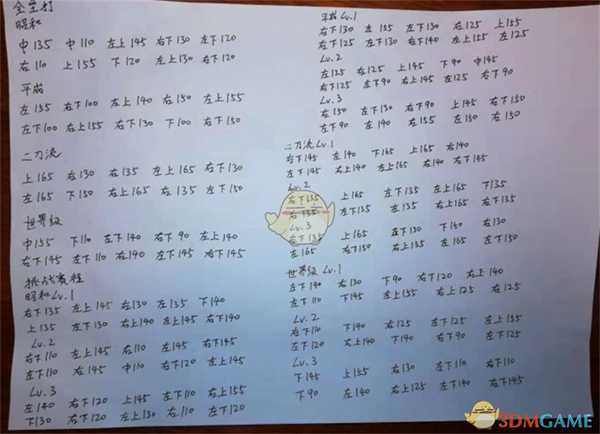 全垒打
昭和
中135 中110 左上145 右下130 左下120
右110 上155 下120 左上130 右下120
平成
左135 右下100 左上140 右150 左上155
左下100 右上155 右下130 下100 右下150
二刀流
上165 右130 右135 左上165 右下130
左165 下150 右上165 右135 左下150
世界级
中135 下110 左下140 右下90 左上140
右下145 左下110 右140 左下145 右下145
挑战赛程
昭和Lv.1
右下135 左上145 右130 左135 下140
上135 左下130 右上140 左上140 右下130
Lv.2
右下110 左上145 右110 左145 右下145
左下110 右145 中110 右下120 左上145
Lv.3
左140 右下120 上145 左下110 右上155
下130 右下120 左上130 右110 左下120
平成Lv.1
右下130 左135 左下130 右125 上155
右下125 左下130 右下140 左上155 左125
Lv.2
左125 右125 上145 下90 中145
右下125 左下90 右上145 左125 右145
Lv.3
右150 左下130 右下90 上145 右下150
左下90 左140 右155 左130 右150
二刀流Lv.1
右下145 左140 下165 上165 右140
左下145 右上140 左上165 右140 右下145
Lv.2
右下135 上165 左下135 左上165 下135
右135 左下135 左135 右上165 右下135
Lv.3
右下135 上165 左下130 下140 右130
左165 右下150 右上135 左165 左下150
世界级 Lv.1
左下140 右130 下90 右下120 右上140
左下110 下145 左上155 右上125 右125
Lv.2
右下110 下140 右125 左下125 左上135
左下120 右上140 下140 右下90 左下125
Lv.3
下145 上155 右130 左下110 右下110
下90 左140 右上125 左下140 右下145
3DMGAME